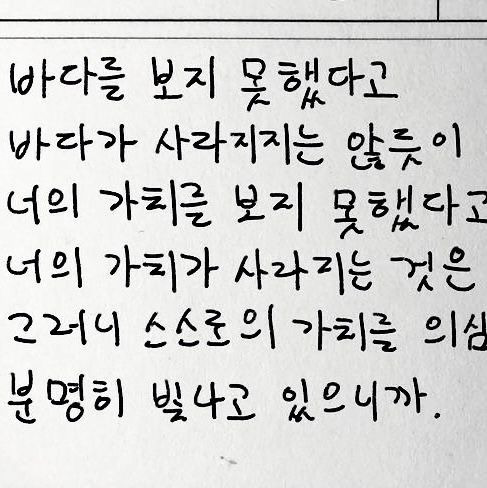 바다를 보지 못했다고
바다가 사라지지는 않듯이
너의 가치를 보지 못했다고
너의 가치가 사라지는 것은
그러니 스스로의 가치를 의심
분명히 빛나고 있으니까.